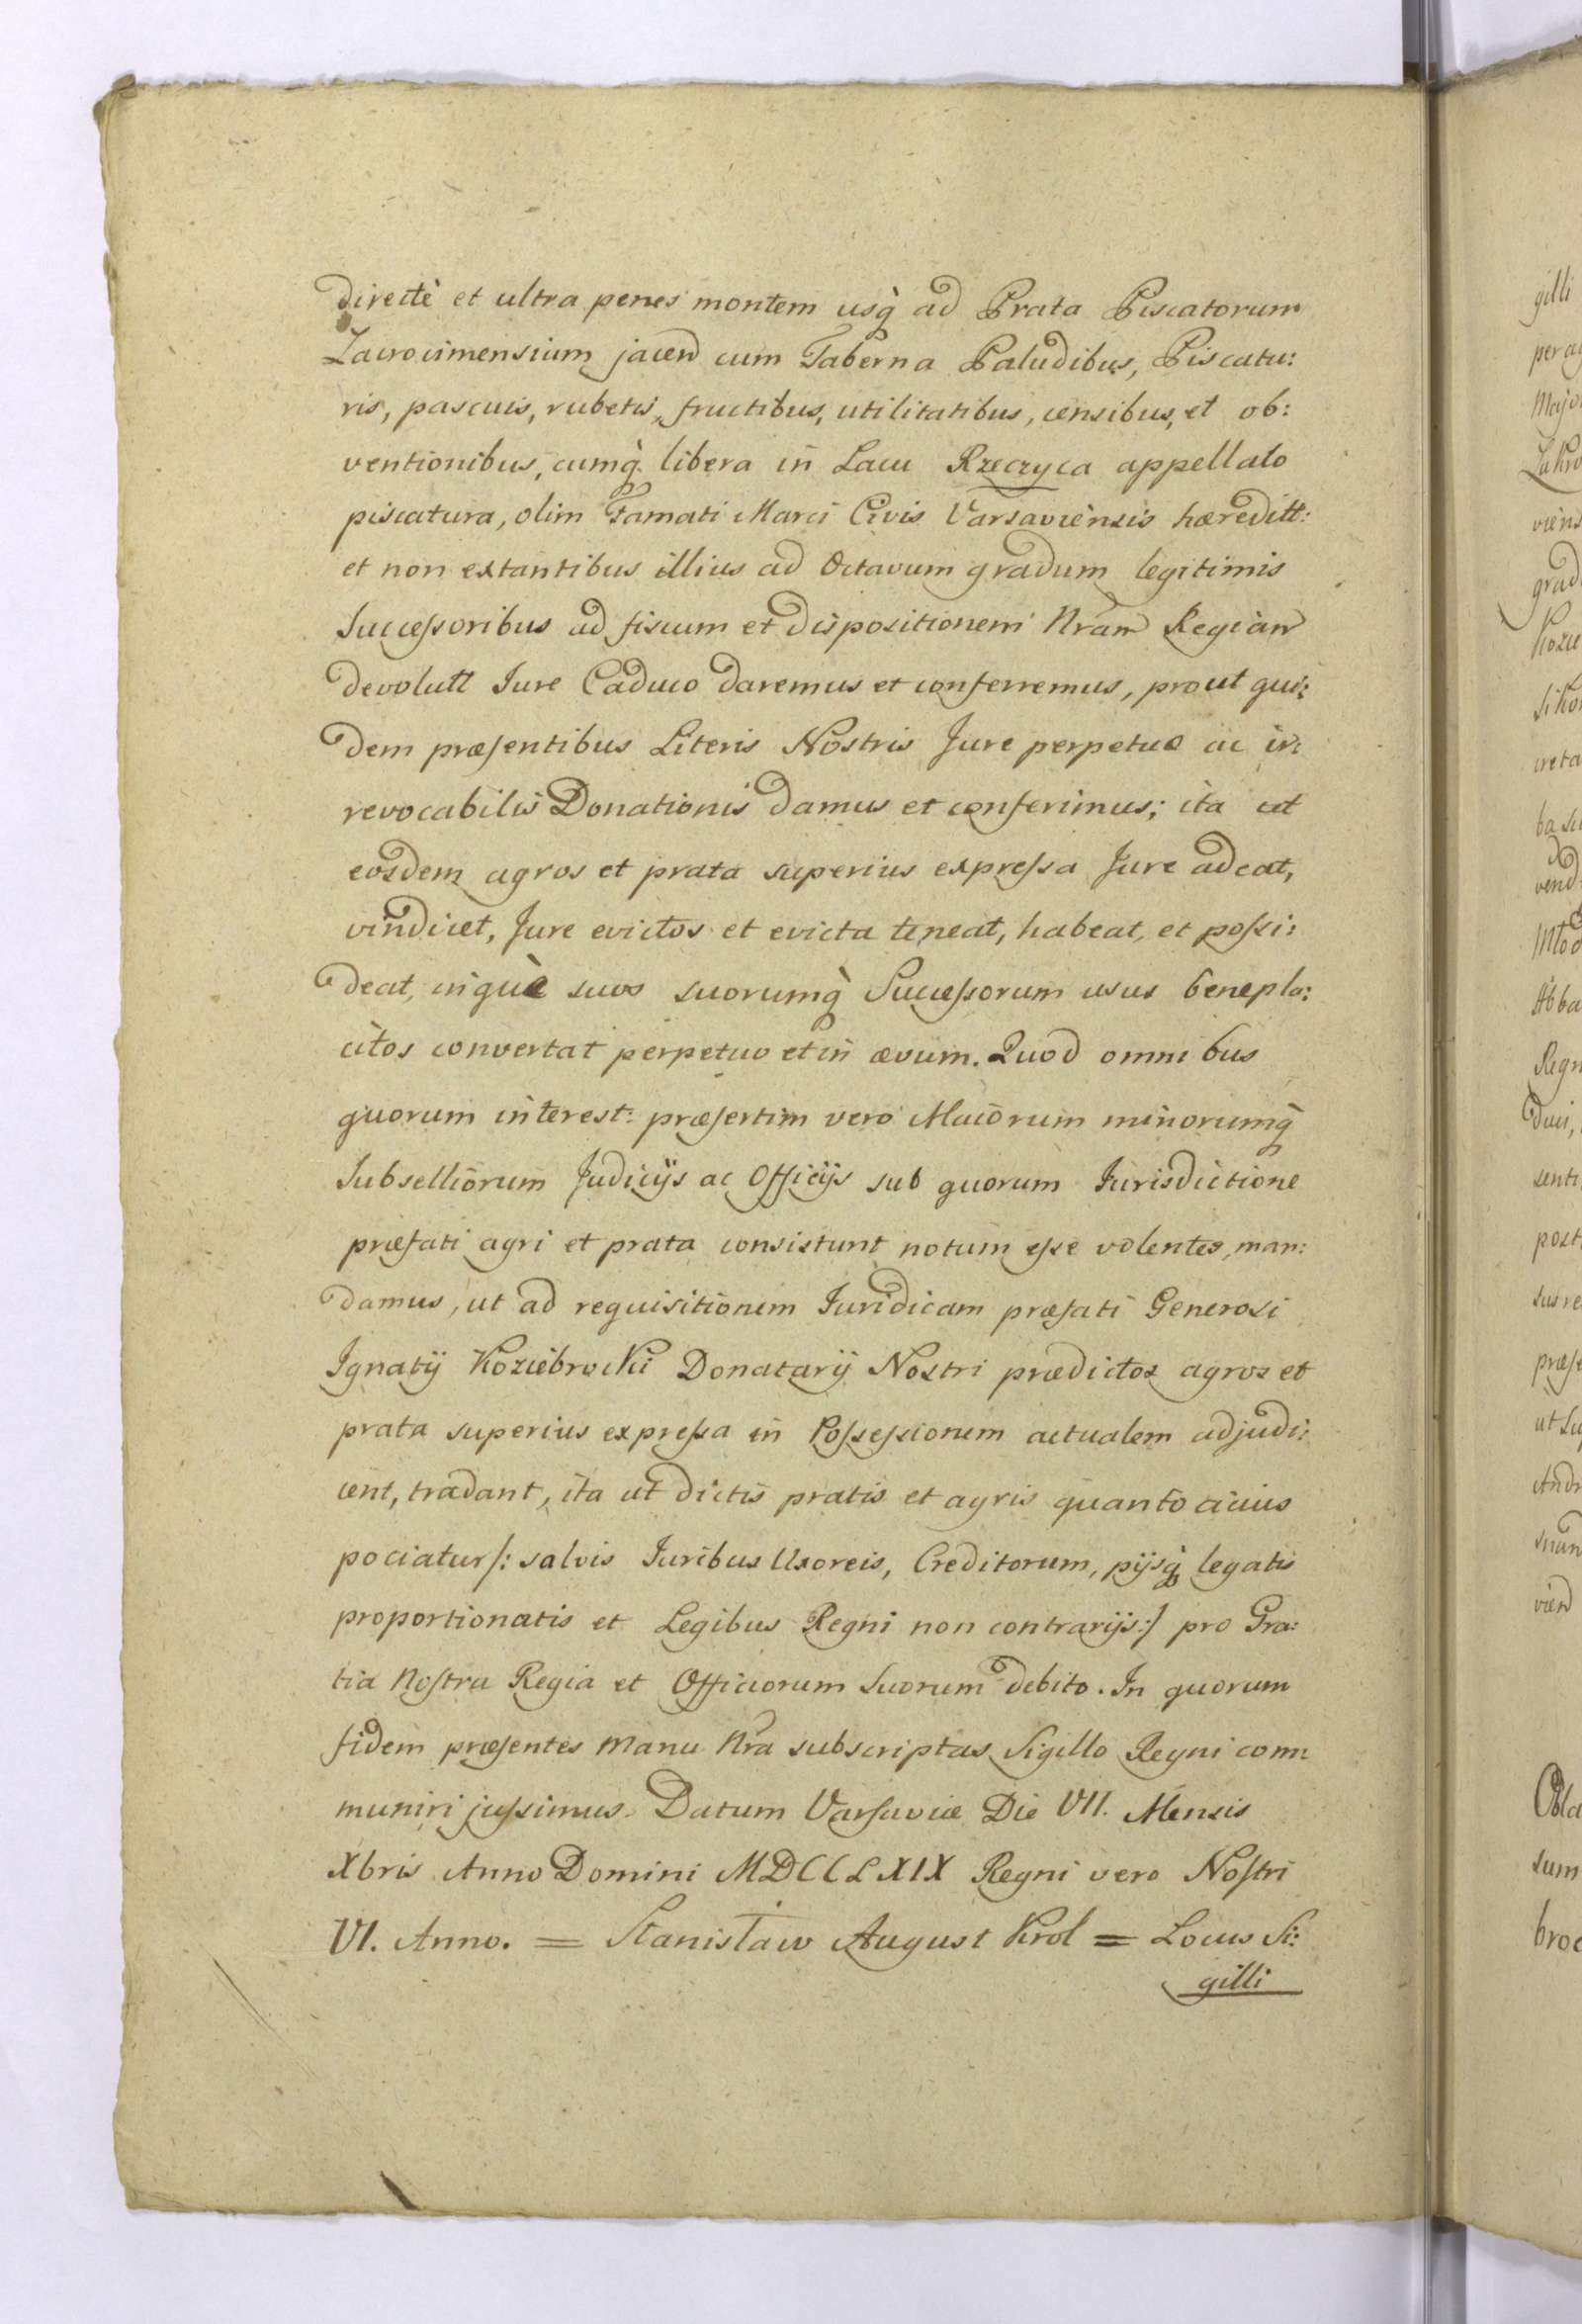 directè et ultra penes montem usq̀ ad Prata Piscatorum
Zacrocimensium jacen̄ cum Taberna Paludibus, Piscatu:
ris, pascuis, rubetis, fructibus, utilitatibus, censibus, et ob:
ventionibus, cumq̀ libera in Lacu Rzeczyca appellato
piscatura, olim Famati Marci Civis Varsaviensis hæreditt:
et non extantibus illius ad Octavum gradum legitimis
Successoribus ad fiscum et dispositionem Nram Regiam
devolutt Iure Caduco daremus et conferremus, prout qui:
dem præsentibus Literis Nostris Jure perpetuo ac ir:
revocabilis Donationis damus et conferimus; ita ut
eosdem agros et prata superius expressa Jure adeat,
vindicet, Jure evictos et evicta teneat, habeat, et possi:
deat, inquè suos suorumq̀ Successorum usus benepla:
citos convertat perpetuo et in ævum. Quod omnibus
quorum interest: præsertim vero Maiorum minorumq̀
Subselliorum Judicijs ac Officijs sub quorum Iurisdictione
præfati agri et prata consistunt notum esse volentes, man:
damus, ut ad requisitionem Iuridicam præfati Generosi
Ignatij Koziebrocki Donatarij Nostri prædictos agros et
prata superius expressa in Possessionem actualem adjudi:
cent, tradant, ita ut dictis pratis et agris quanto cicius
pociatur /: salvis Iuribus Uxoreis, Creditorum, pijsq̀ legatis
proportionatis et Legibus Regni non contrarijs :/ pro Gra:
tia Nostra Regia et Officiorum Suorum debito. In quorum
fidem præsentes Manu Nra subscriptas Sigillo Regni com:
muniri jussimus. Datum Varsaviæ Die VII. Mensis
Xbris Anno Domini MDCCLXIX Regni vero Nostri
VI. Anno. = Stanisław August Krol = Locus Si:
gilli